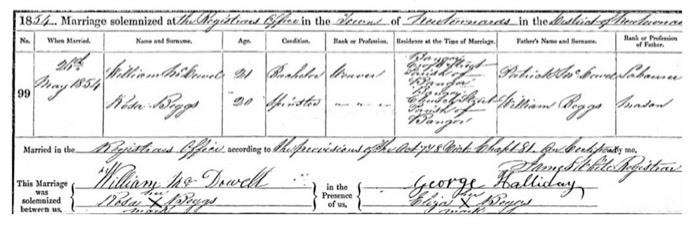 1854. Marriage solemnized at the Registrars Office in the Town of Newtownards in the District of Newtownards
No. When Married. Name and Surname. Age. Condition. Rank or Profession. Residence at the Time of Marriage. Father's Name and Surname. Rank or Profession of Father.
99 May 1854 William McDowel 21 Bachelor Weaver Parish of Bangor Patrick McDowel Labourer
Rosa Boggs 20 Spinster Church Street Parish of Bangor William Boggs Mason
Married in the Registrars Office according to the provisions of the Act by me,
James Registrar
This Marriage was solemnized between us, William McDowell in the Presence of us, George Halliday
Rosa her X mark Boggs Eliza her X mark Boggs